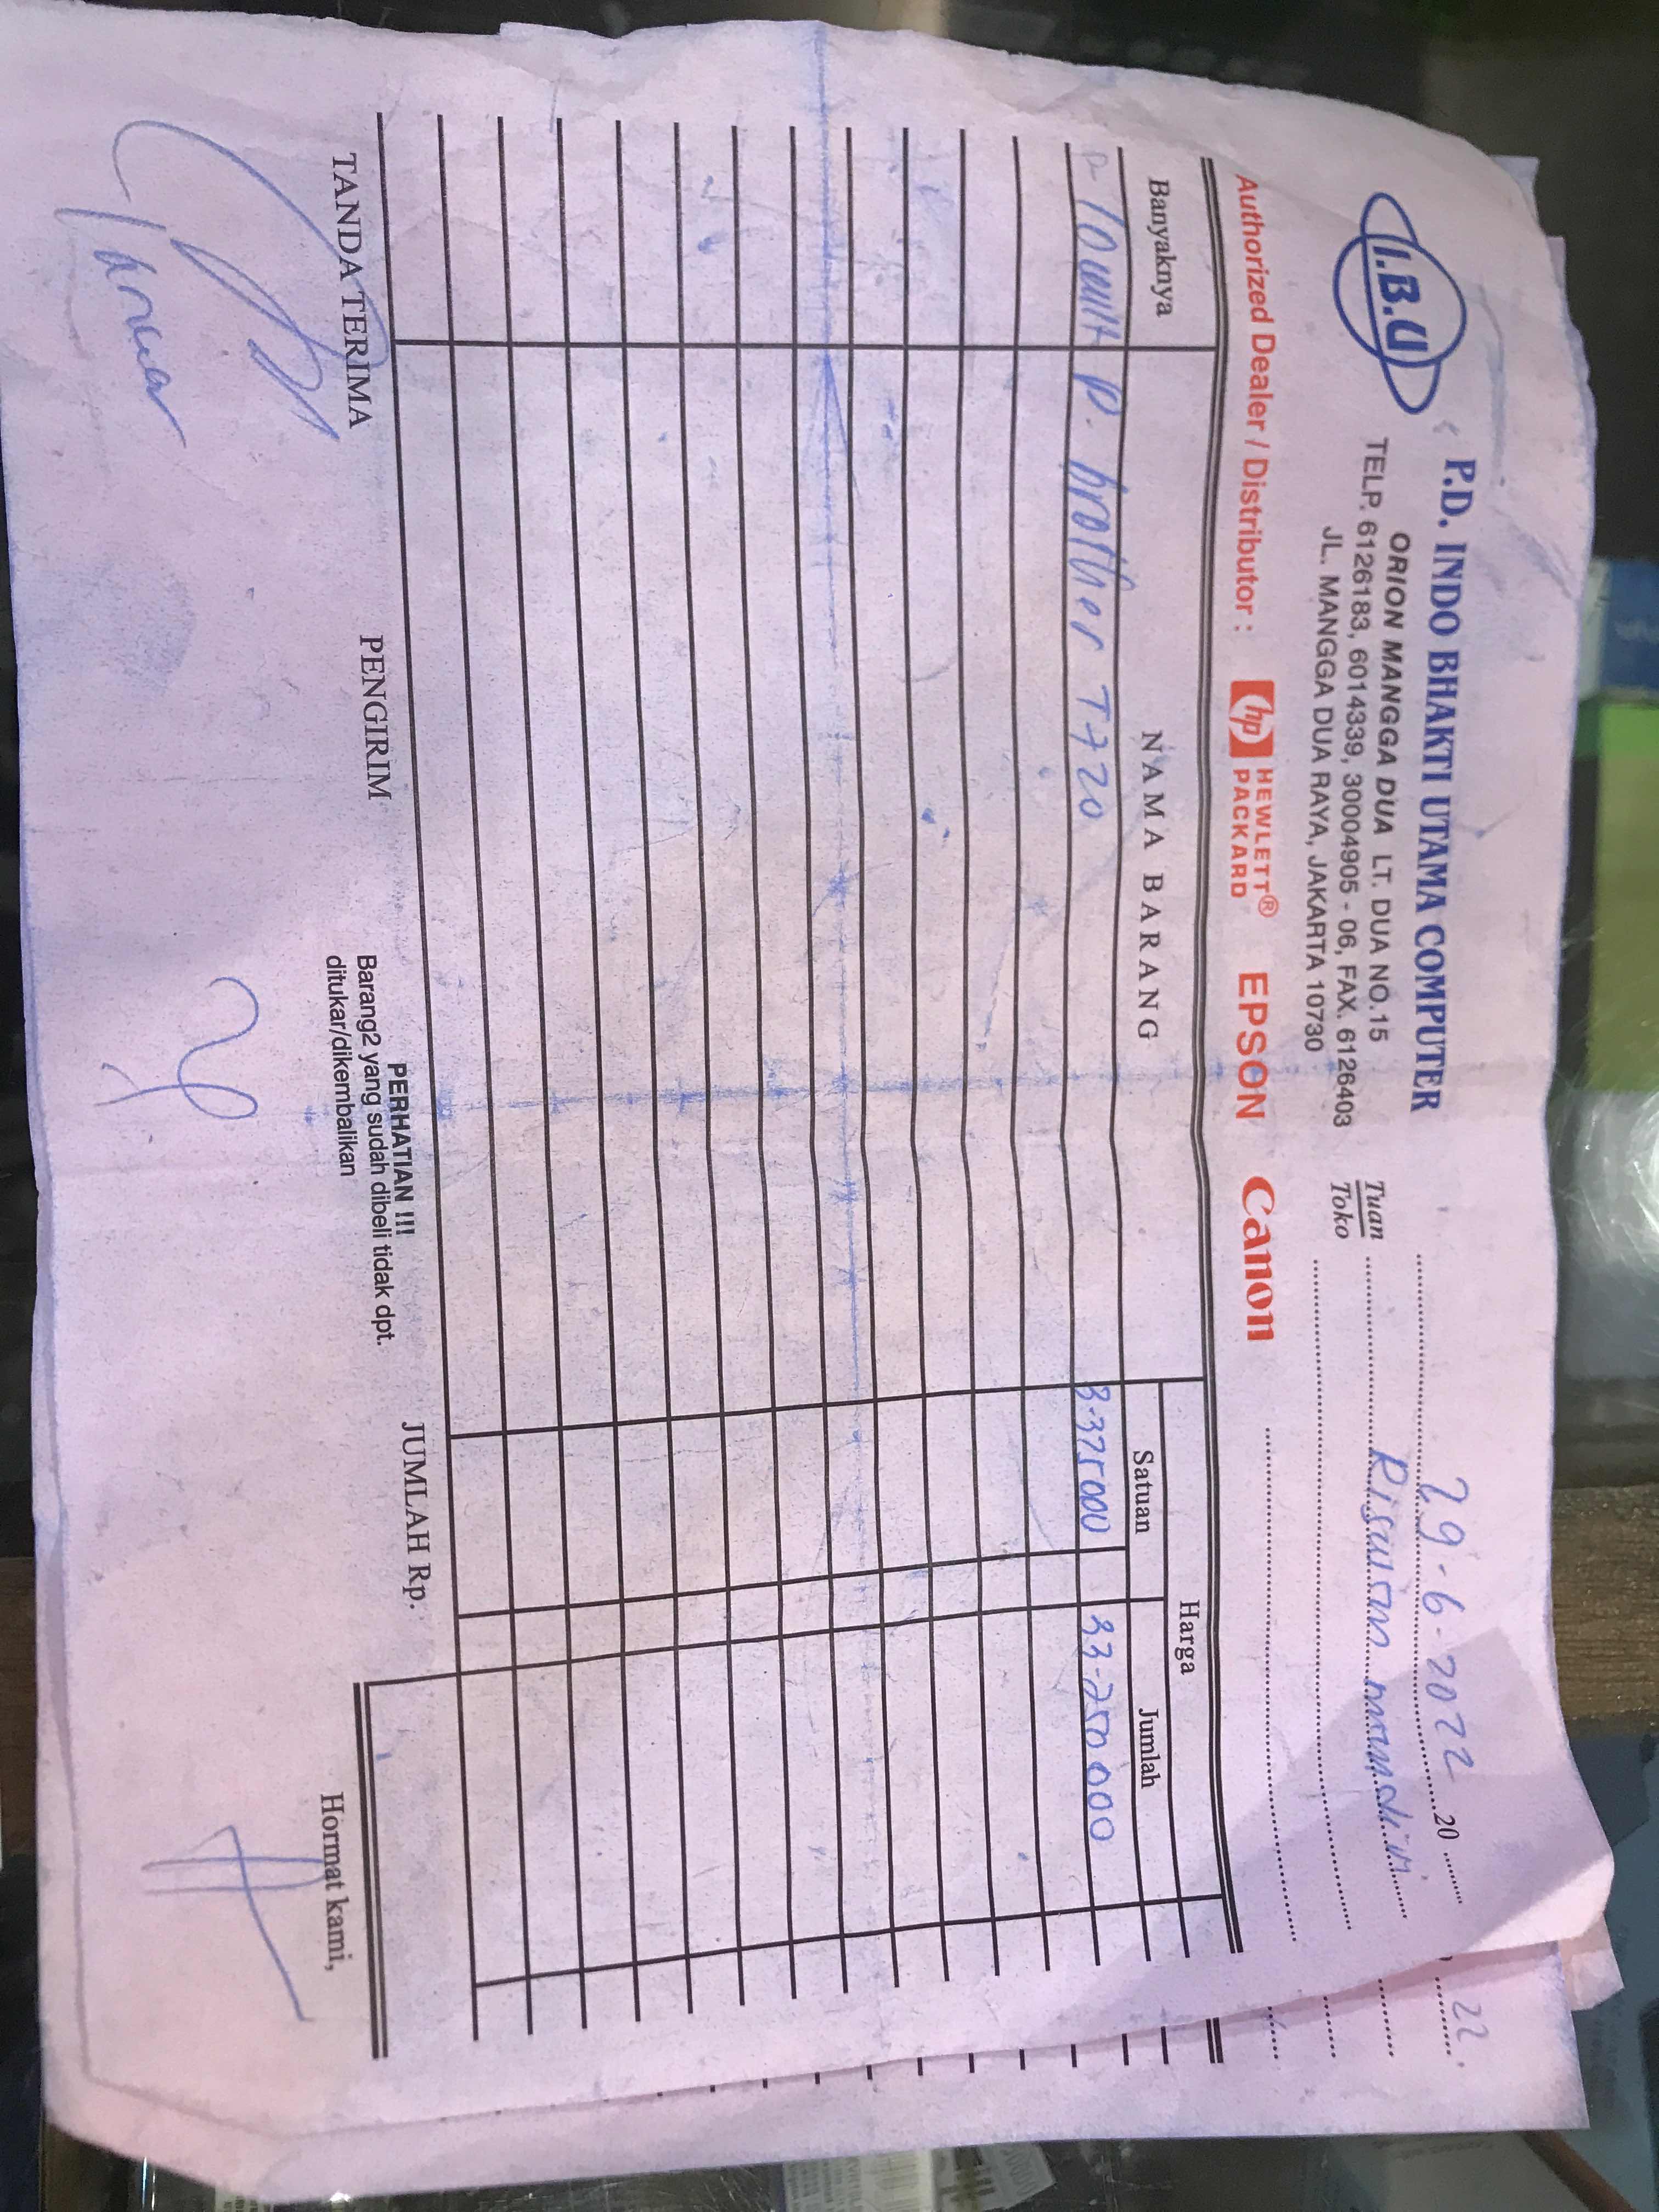 I.B.U
P.D. INDO BHAKTI UTAMA COMPUTER
ORION MANGGA DUA LT. DUA NO.15
TELP. 6126183, 6014339, 30004905 - 06, FAX. 6126403
JL. MANGGA DUA RAYA, JAKARTA 10730
29-6-2022 20
Tuan
Toko
Authorized Dealer / Distributor : hp HEWLETT® PACKARD EPSON Canon
Banyaknya NAMA BARANG Harga
Satuan Jumlah
10 unit P. brother T720 3.375000 33.750000
TANDA TERIMA PENGIRIM
PERHATIAN !!!
Barang2 yang sudah dibeli tidak dpt.
ditukar/dikembalikan
JUMLAH Rp.
Hormat kami,
22